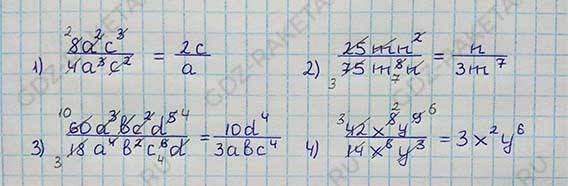 1) ²8a²c³ / 4a³c² = 2c / a
2) 25mn² / ₃75m⁸₇n = n / 3m⁷
3) ¹⁰60a³bc²d⁵ ⁴ / ₃18a⁴b²c⁶₄d = 10d⁴ / 3abc⁴
4) ³42x⁸ ²y⁹ ⁶ / 14x⁶y³ = 3x²y⁶
GDZ-RAKETA.RU